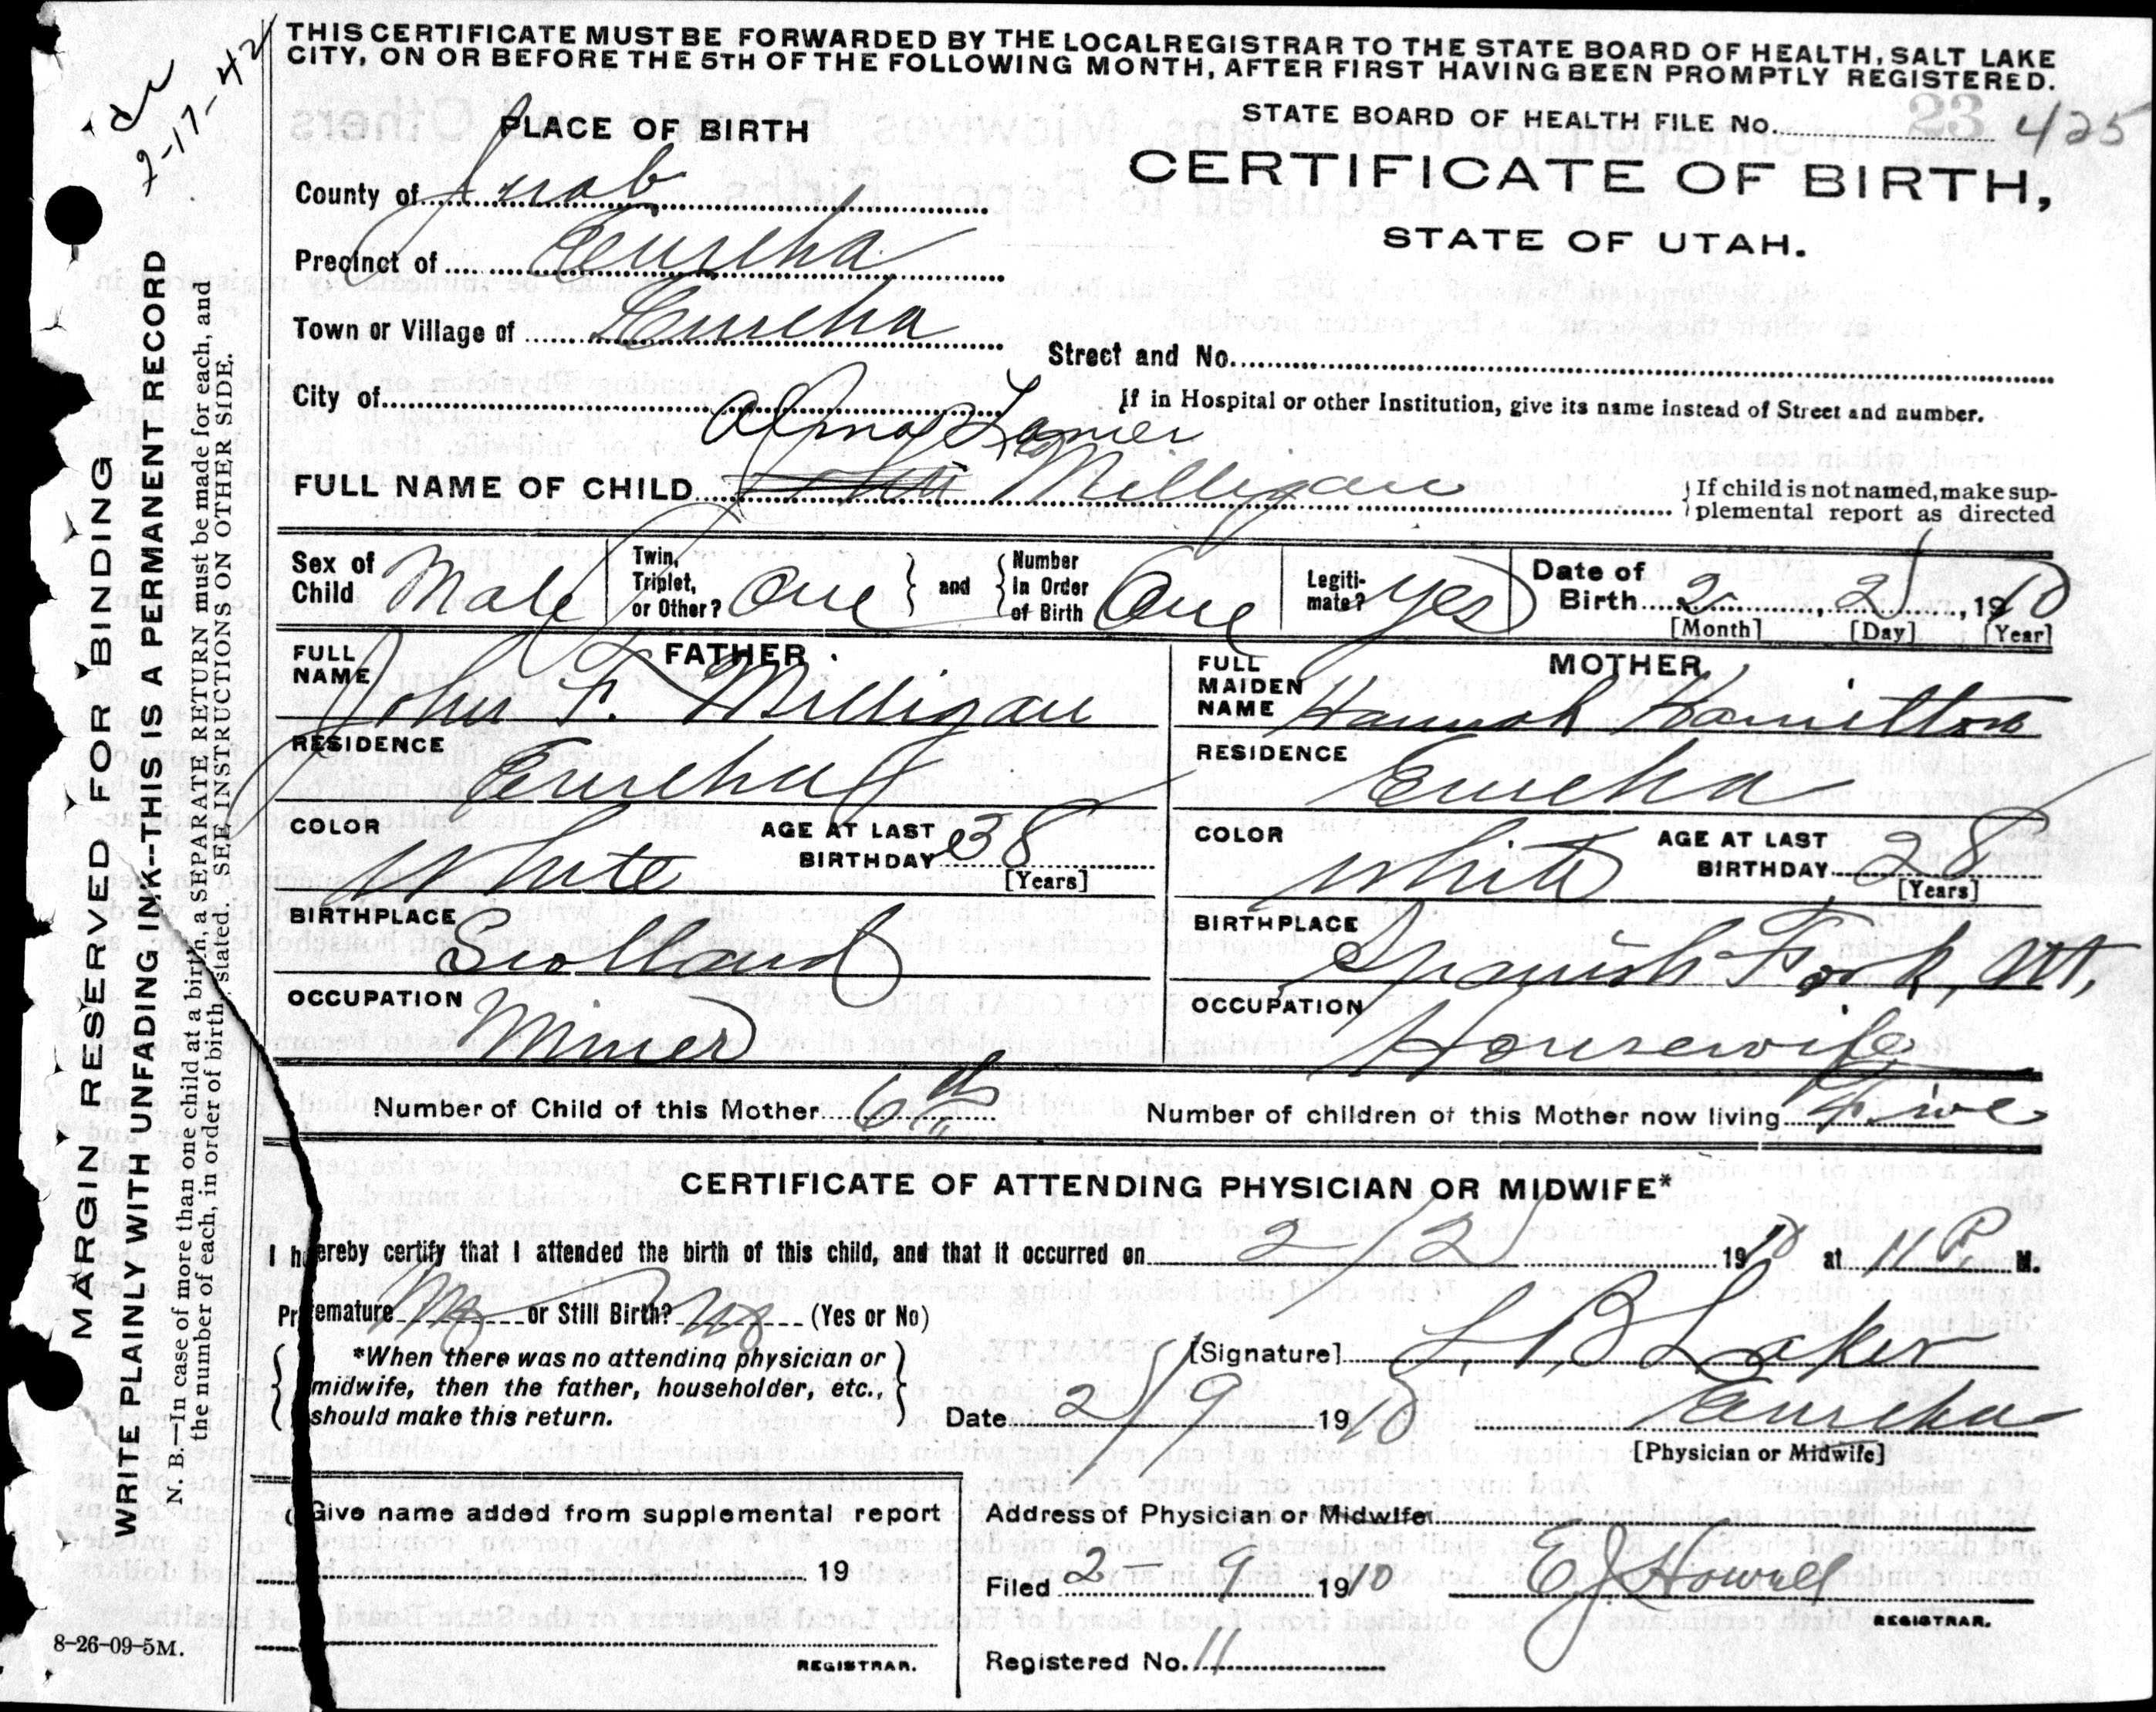 THIS CERTIFICATE MUST BE FORWARDED BY THE LOCAL REGISTRAR TO THE STATE BOARD OF HEALTH, SALT LAKE
CITY, ON OR BEFORE THE 5TH OF THE FOLLOWING MONTH, AFTER FIRST HAVING BEEN PROMPTLY REGISTERED.
2-17-42
PLACE OF BIRTH
STATE BOARD OF HEALTH FILE No. 23 425
CERTIFICATE OF BIRTH,
STATE OF UTAH.
County of Juab
Precinct of Eureka
Town or Village of Eureka
Street and No.
City of
If in Hospital or other Institution, give its name instead of Street and number.
Alma
FULL NAME OF CHILD Milligan
If child is not named, make sup-
plemental report as directed
Sex of Child Male
Twin, Triplet, or Other? One and Number in Order of Birth One
Legiti-mate? Yes
Date of Birth 2, 2, 1910
[Month] [Day] [Year]
FATHER
FULL NAME John F. Milligan
RESIDENCE Eureka
COLOR White
AGE AT LAST BIRTHDAY 38
[Years]
BIRTHPLACE Scotland
OCCUPATION Miner
MOTHER
FULL MAIDEN NAME Hannah Hamilton
RESIDENCE Eureka
COLOR White
AGE AT LAST BIRTHDAY 28
[Years]
BIRTHPLACE Spanish Fork, Ut,
OCCUPATION Housewife
Number of Child of this Mother 6th
Number of children of this Mother now living Five
CERTIFICATE OF ATTENDING PHYSICIAN OR MIDWIFE*
I hereby certify that I attended the birth of this child, and that it occurred on 2/2 1910 at 11 P M.
Premature No or Still Birth? No (Yes or No)
*When there was no attending physician or
midwife, then the father, householder, etc.,
should make this return.
[Signature] L. B. Laker
Date 2/9 1910 Eureka
[Physician or Midwife]
Give name added from supplemental report
19
REGISTRAR.
Address of Physician or Midwife
Filed 2-9 1910 E J Howell
REGISTRAR.
Registered No. 11
MARGIN RESERVED FOR BINDING
WRITE PLAINLY WITH UNFADING INK--THIS IS A PERMANENT RECORD
N. B.—In case of more than one child at a birth, a SEPARATE RETURN must be made for each, and
the number of each, in order of birth, stated. SEE INSTRUCTIONS ON OTHER SIDE.
8-26-09-5M.